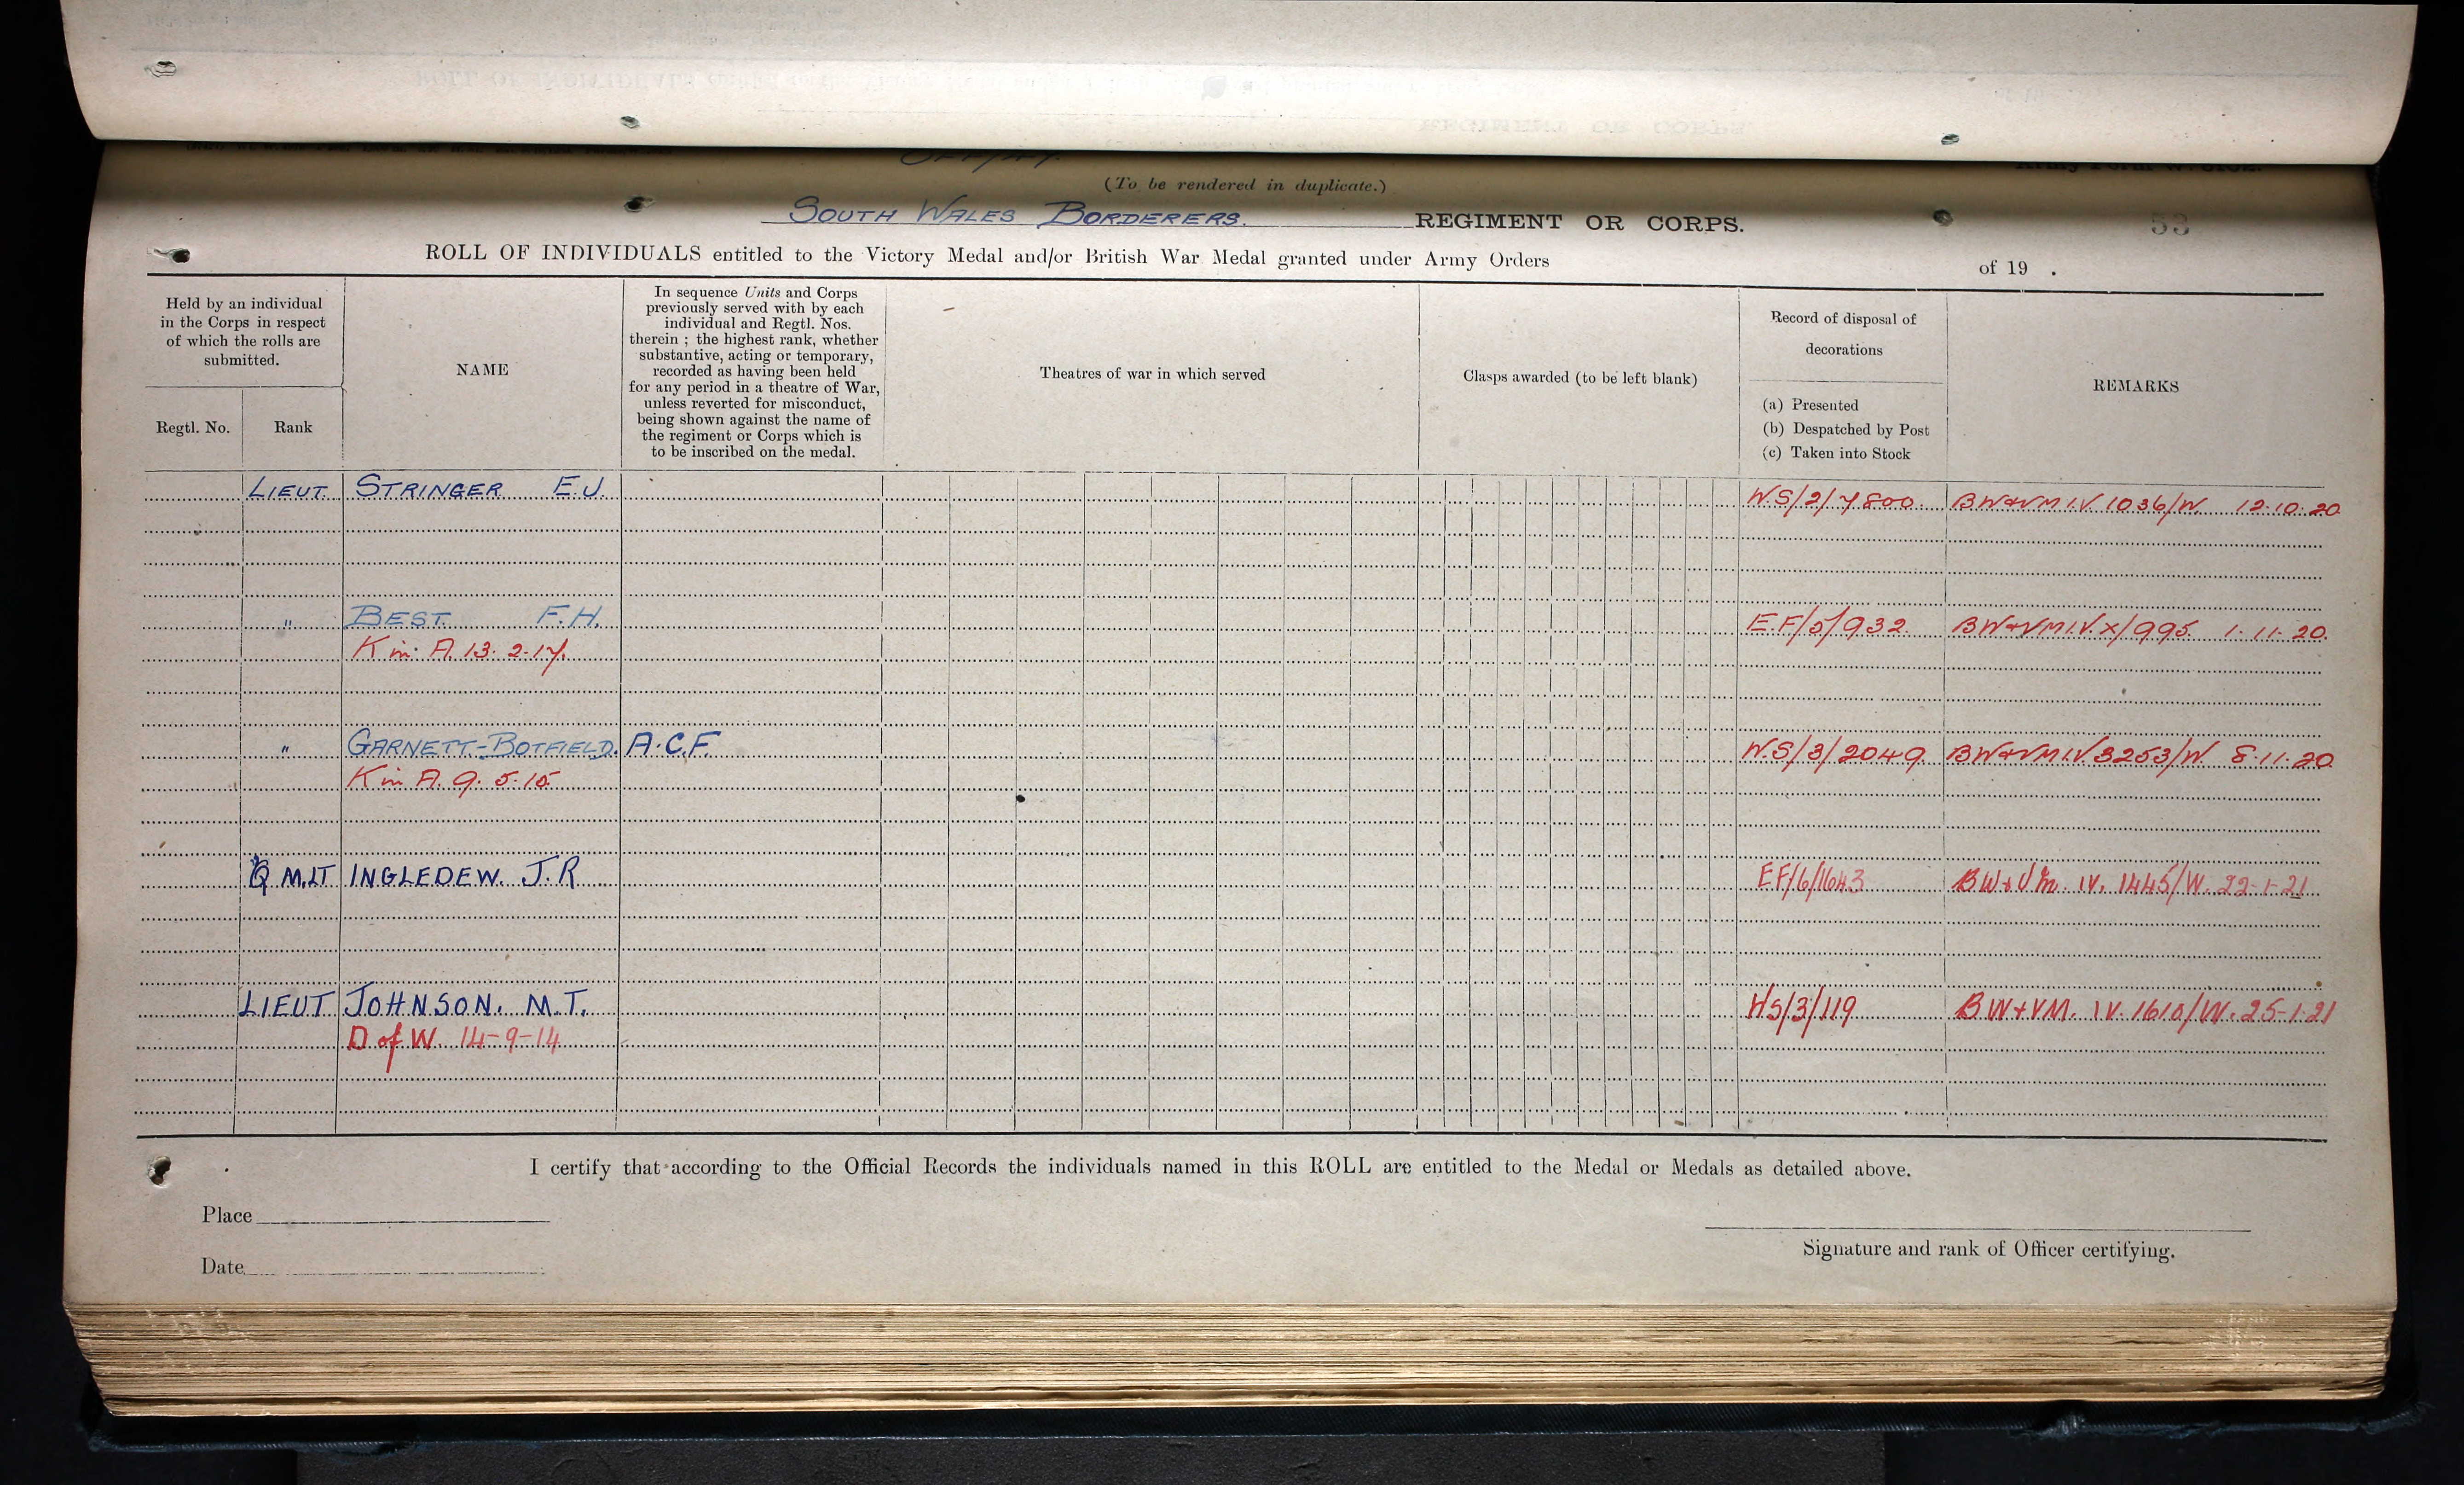 (To be rendered in duplicate.)
SOUTH WALES BORDERERS. REGIMENT OR CORPS. 53
ROLL OF INDIVIDUALS entitled to the Victory Medal and/or British War Medal granted under Army Orders of 19 .
Held by an individual
in the Corps in respect
of which the rolls are
submitted.
Regtl. No.
Rank
NAME
In sequence Units and Corps
previously served with by each
individual and Regtl. Nos.
therein ; the highest rank, whether
substantive, acting or temporary,
recorded as having been held
for any period in a theatre of War,
unless reverted for misconduct,
being shown against the name of
the regiment or Corps which is
to be inscribed on the medal.
Theatres of war in which served
Clasps awarded (to be left blank)
Record of disposal of
decorations
(a) Presented
(b) Despatched by Post
(c) Taken into Stock
REMARKS
LIEUT. STRINGER E.J. W.S/2/7800. BW&VM I.V. 1036/W. 12.10.20
" BEST. F.H. E.F/5/932. BW&VM I.V. X/995. 1.11.20.
K in A. 13.2.17.
" GARNETT-BOTFIELD. A.C.F. W.S/3/2049. BW&VM I.V. 3253/W. 8.11.20
K in A. 9.5.15
Q M.LT INGLEDEW. J.R EF/6/1643 BW & VM. IV. 1445/W. 22-1-21
LIEUT JOHNSON. M.T. HS/3/119 BW+VM. IV. 1610/W. 25-1-21
D of W. 14-9-14
I certify that according to the Official Records the individuals named in this ROLL are entitled to the Medal or Medals as detailed above.
Place
Date
Signature and rank of Officer certifying.